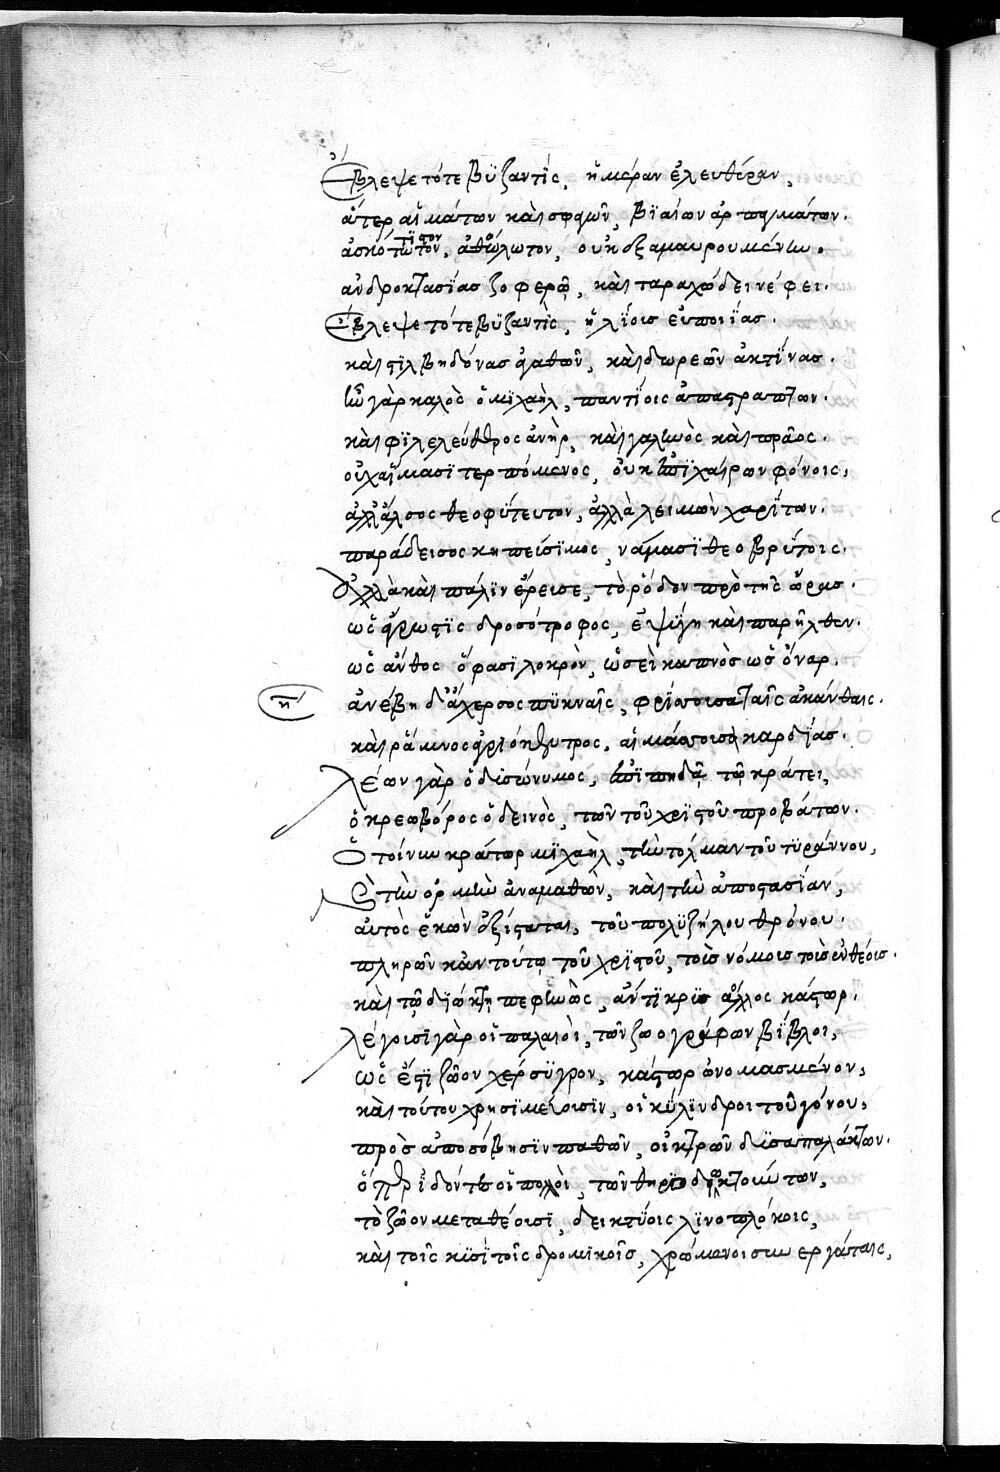 Ἔβλεψε τότε Βϋζαντὶς, ἡμέραν ἐλευθέραν,
ἄτερ αἱμάτων καὶ σφαγῶν, βϊαίων ἁρπαγμάτων.
ἀσκότϊστον, ἀθόλωτον, οὐκ ἐξαμαυρουμένην.
ἀνδροκτασίας ζοφερᾶς, καὶ ταραχώδει νέφει.
Ἔβλεψε τότε Βϋζαντὶς, ἡλΐοις εὐποιΐας.
καὶ στϊλβηδόνας ἀγαθῶν, καὶ δωρεῶν ἀκτῖνας.
ἦν γὰρ καλὸς ὁ Μϊχαὴλ, παντΐοις ἀπαστράπτων.
καὶ φϊλελεύθερος ἀνὴρ, καὶ γαληνὸς καὶ πρᾶος.
οὐχ αἵμασϊ τερπόμενος, οὐκ ἐπϊχαίρων φόνοις,
ἀλλ' ἄλσος θεοφΰτευτον, ἀλλὰ λειμὼν χαρΐτων.
παράδεισος κηπεύσϊμος, νάμασϊ θεοβρΰτοις.
Ἀλλὰ καὶ πάλϊν ἔρευσε, τὸ ῥόδον πρὸ τῆς ὥρας.
ὡς ἄγρωστϊς δροσότροφος, ἐψΰγη καὶ παρῆλθεν.
ὡς ἄνθος ὄφασϊλοκρὸν, ὡσεὶ καπνὸς ὡς ὄναρ.
η
ἀνέβη δ' ἄχερσος πϋκναῖς, φρΐττουσα ταῖς ἀκάνθαις.
καὶ ῥάμνος ἀγριόκεντρος, αἱμάττουσα καρδίας.
Λέων γὰρ ὁ δυσώνυμος, ἐπϊπηδᾷ τῷ κράτει,
ὁ κρεωβόρος ὁ δεινὸς, τῶν τοῦ Χρϊστοῦ προβάτων.
Ὁ τοίνυν κράτωρ Μϊχαὴλ, τὴν τόλμαν τοῦ τϋράννου,
καὶ τὴν ὁρμὴν ἀναμαθὼν, καὶ τὴν ἀποστασίαν,
αὐτὸς ἑκὼν ἐξίσταται, τοῦ πολϋζήλου θρόνου.
πληρῶν κἀν τούτῳ τοῦ Χρϊστοῦ, τοῖς νόμοις τοῖς ἐνθέοις.
καὶ τῷ δϊώκτῃ πεφηνὼς, ἀντϊκρὺς ἄλλος κάστωρ.
λέγουσϊ γὰρ οἱ παλαιοὶ, τῶν ζωογράφων βίβλοι,
ὡς ἔστϊ ζῶον χέρσϋγρον, κάστωρ ὠνομασμένον,
καὶ τούτου χρησϊμεύουσϊν, οἱ κΰλϊνδροι τοῦ γόνου,
πρὸς ἀποσόβησϊν παθῶν, οἰκτρῶν δυσαπαλάκτων.
ὅπερ ἰδόντες οἱ πολλοὶ, τῶν θηρϊοδιωκτούντων,
τὸ ζῶον μεταθέουσϊ, δεικτΰοις λϊνοπλόκοις,
καὶ τοῖς κϋσὶ τοῖς δρομϊκοῖς, χρώμενοι συνεργάταις,